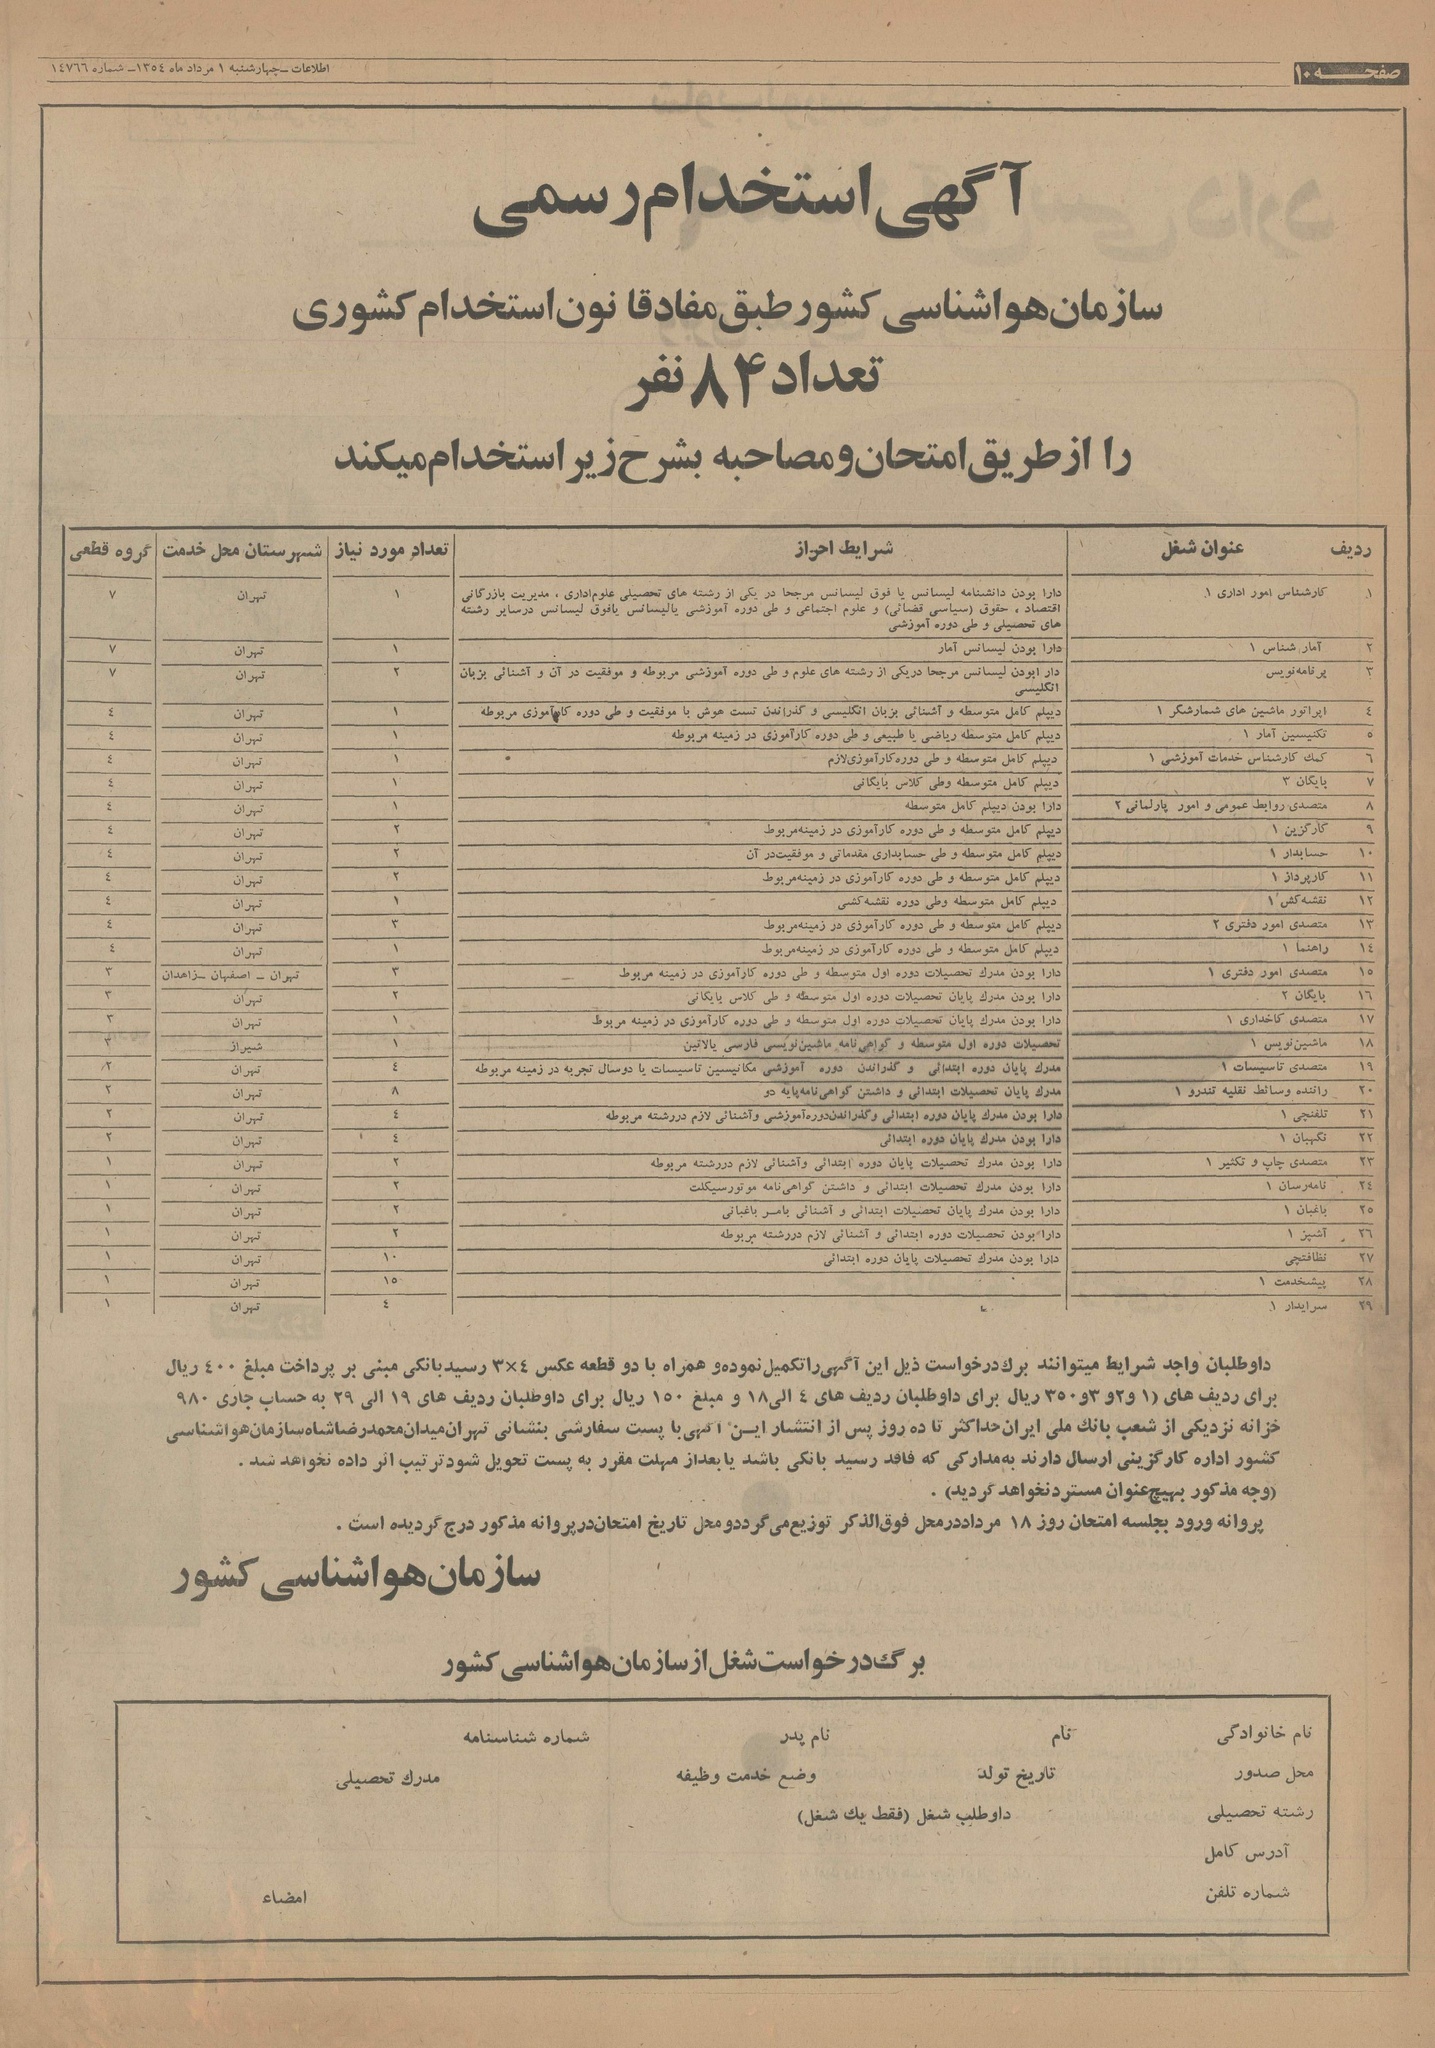 صفحه ۱۰
اطلاعات ـ چهارشنبه ۱ مرداد ماه ۱۳۵۴ ـ شماره ۱۴۷۶۶
آگهی استخدام رسمی
سازمان هواشناسی کشور طبق مفاد قانون استخدام کشوری
تعداد ۸۴ نفر
را از طریق امتحان و مصاحبه بشرح زیر استخدام میکند
ردیف عنوان شغل شرایط احراز تعداد مورد نیاز شهرستان محل خدمت گروه قطعی
۱ کارشناس امور اداری ۱ دارا بودن دانشنامه لیسانس یا فوق لیسانس مرجحا در یکی از رشته های تحصیلی علوم اداری ، مدیریت بازرگانی ۱ تهران ۷
اقتصاد ، حقوق (سیاسی قضائی) و علوم اجتماعی و طی دوره آموزشی یالیسانس یافوق لیسانس درسایر رشته
های تحصیلی و طی دوره آموزشی
۲ آمار شناس ۱ دارا بودن لیسانس آمار ۱ تهران ۷
۳ برنامه نویس دار ابودن لیسانس مرجحا دریکی از رشته های علوم و طی دوره آموزشی مربوطه و موفقیت در آن و آشنائی بزبان ۲ تهران ۷
انگلیسی
۴ اپراتور ماشین های شمارشگر ۱ دیپلم کامل متوسطه و آشنائی بزبان انگلیسی و گذراندن تست هوش با موفقیت و طی دوره کارآموزی مربوطه ۱ تهران ۴
۵ تکنیسین آمار ۱ دیپلم کامل متوسطه ریاضی یا طبیعی و طی دوره کارآموزی در زمینه مربوطه ۱ تهران ۴
۶ کمک کارشناس خدمات آموزشی ۱ دیپلم کامل متوسطه و طی دوره کارآموزی لازم ۱ تهران ۴
۷ بایگان ۳ دیپلم کامل متوسطه وطی کلاس بایگانی ۱ تهران ۴
۸ متصدی روابط عمومی و امور پارلمانی ۲ دارا بودن دیپلم کامل متوسطه ۱ تهران ۴
۹ کارگزین ۱ دیپلم کامل متوسطه و طی دوره کارآموزی در زمینه مربوط ۲ تهران ۴
۱۰ حسابدار ۱ دیپلم کامل متوسطه و طی حسابداری مقدماتی و موفقیت در آن ۲ تهران ۴
۱۱ کارپرداز ۱ دیپلم کامل متوسطه و طی دوره کارآموزی در زمینه مربوط ۲ تهران ۴
۱۲ نقشه کش ۱ دیپلم کامل متوسطه وطی دوره نقشه کشی ۱ تهران ۴
۱۳ متصدی امور دفتری ۲ دیپلم کامل متوسطه و طی دوره کارآموزی در زمینه مربوط ۳ تهران ۴
۱۴ راهنما ۱ دیپلم کامل متوسطه و طی دوره کارآموزی در زمینه مربوط ۱ تهران ۴
۱۵ متصدی امور دفتری ۱ دارا بودن مدرک تحصیلات دوره اول متوسطه و طی دوره کارآموزی در زمینه مربوط ۳ تهران ـ اصفهان ـ زاهدان ۳
۱۶ بایگان ۲ دارا بودن مدرک پایان تحصیلات دوره اول متوسطه و طی کلاس بایگانی ۲ تهران ۳
۱۷ متصدی کاخداری ۱ دارا بودن مدرک پایان تحصیلات دوره اول متوسطه و طی دوره کارآموزی در زمینه مربوط ۱ تهران ۳
۱۸ ماشین نویس ۱ تحصیلات دوره اول متوسطه و گواهی نامه ماشین نویسی فارسی یالاتین ۱ شیراز ۳
۱۹ متصدی تاسیسات ۱ مدرک پایان دوره ابتدائی و گذراندن دوره آموزشی مکانیسین تاسیسات یا دوسال تجربه در زمینه مربوطه ۴ تهران ۲
۲۰ راننده وسائط نقلیه تندرو ۱ مدرک پایان تحصیلات ابتدائی و داشتن گواهی نامه پایه دو ۸ تهران ۲
۲۱ تلفنچی ۱ دارا بودن مدرک پایان دوره ابتدائی وگذراندن دوره آموزشی وآشنائی لازم دررشته مربوطه ۴ تهران ۲
۲۲ نگهبان ۱ دارا بودن مدرک پایان دوره ابتدائی ۴ تهران ۲
۲۳ متصدی چاپ و تکثیر ۱ دارا بودن مدرک تحصیلات پایان دوره ابتدائی وآشنائی لازم دررشته مربوطه ۲ تهران ۱
۲۴ نامه رسان ۱ دارا بودن مدرک تحصیلات ابتدائی و داشتن گواهی نامه موتورسیکلت ۲ تهران ۱
۲۵ باغبان ۱ دارا بودن مدرک پایان تحصیلات ابتدائی و آشنائی بامر باغبانی ۲ تهران ۱
۲۶ آشپز ۱ دارا بودن تحصیلات دوره ابتدائی و آشنائی لازم دررشته مربوطه ۲ تهران ۱
۲۷ نظافتچی دارا بودن مدرک تحصیلات پایان دوره ابتدائی ۱۰ تهران ۱
۲۸ پیشخدمت ۱ ۱۵ تهران ۱
۲۹ سرایدار ۱ ۴ تهران ۱
داوطلبان واجد شرایط میتوانند برک درخواست ذیل این آگهی را تکمیل نموده و همراه با دو قطعه عکس ۴×۳ رسید بانکی مبنی بر پرداخت مبلغ ۴۰۰ ریال
برای ردیف های (۱ و۲و ۳و۳۵۰ ریال برای داوطلبان ردیف های ۴ الی۱۸ و مبلغ ۱۵۰ ریال برای داوطلبان ردیف های ۱۹ الی ۲۹ به حساب جاری ۹۸۰
خزانه نزدیکی از شعب بانک ملی ایران حداکثر تا ده روز پس از انتشار ایـن آگهی با پست سفارشی بنشانی تهران میدان محمدرضا شاه سازمان هواشناسی
کشور اداره کارگزینی ارسال دارند به مدارکی که فاقد رسید بانکی باشد یا بعداز مهلت مقرر به پست تحویل شود ترتیب اثر داده نخواهد شد .
(وجه مذکور بهیچ عنوان مسترد نخواهد گردید) .
پروانه ورود بجلسه امتحان روز ۱۸ مرداد در محل فوق الذکر توزیع می گردد و محل تاریخ امتحان در پروانه مذکور درج گردیده است .
سازمان هواشناسی کشور
برگ درخواست شغل از سازمان هواشناسی کشور
نام خانوادگی نام نام پدر شماره شناسنامه
محل صدور تاریخ تولد وضع خدمت وظیفه مدرک تحصیلی
رشته تحصیلی داوطلب شغل (فقط یک شغل)
آدرس کامل
شماره تلفن امضاء